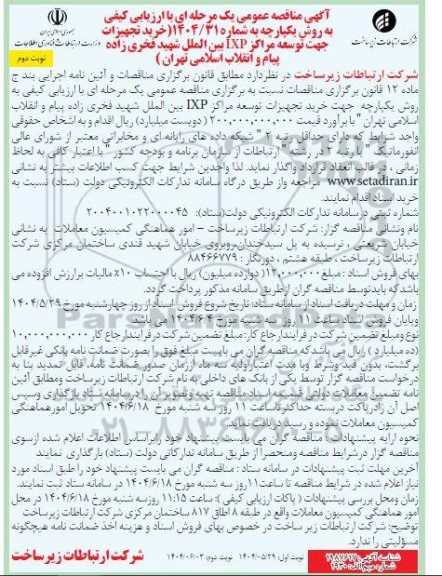 آگهی مناقصه عمومی یک مرحله ای با ارزیابی کیفی
به روش یکپارچه به شماره ۱۴۰۴/۳۱ (خرید تجهیزات
جهت توسعه مراکز IXP بین الملل شهید فخری زاده
پیام و انقلاب اسلامی تهران)
شرکت ارتباطات زیرساخت
جمهوری اسلامی ایران
وزارت ارتباطات و فناوری اطلاعات
نوبت دوم
شرکت ارتباطات زیرساخت در نظر دارد مطابق قانون برگزاری مناقصات و آئین نامه اجرایی بند ج
ماده ۱۲ قانون برگزاری مناقصات نسبت به برگزاری مناقصه عمومی یک مرحله ای با ارزیابی کیفی به
روش یکپارچه جهت خرید تجهیزات توسعه مراکز IXP بین الملل شهید فخری زاده پیام و انقلاب
اسلامی تهران " با برآورد قیمت ۲۰۰,۰۰۰,۰۰۰,۰۰۰ (دویست میلیارد) ریال اقدام و به اشخاص حقوقی
واجد شرایط که دارای حداقل رتبه ۲ " شبکه داده های رایانه ای و مخابراتی معتبر از شورای عالی
انفورماتیک " یا رتبه ۳ در رشته " ارتباطات از سازمان برنامه و بودجه کشور " با اعتبار کافی به لحاظ
زمانی، در قالب انعقاد قرارداد واگذار نماید. لذا واجدین شرایط جهت کسب اطلاعات بیشتر به نشانی
www.setadiran.ir مراجعه و از طریق درگاه سامانه تدارکات الکترونیکی دولت (ستاد) نسبت به
خرید اسناد اقدام نمایند.
شماره ثبتی در سامانه تدارکات الکترونیکی دولت(ستاد): ۲۰۰۴۰۰۱۰۲۲۰۰۰۰۴۵
نام و نشانی مناقصه گزار: شرکت ارتباطات زیرساخت – امور هماهنگی کمیسیون معاملات به نشانی
خیابان شریعتی، نرسیده به پل سیدخندان، روبروی خیابان شهید قندی ساختمان مرکزی شرکت
ارتباطات زیرساخت، طبقه هشتم، دورنگار: ۸۸۴۶۶۷۷۹
بهای فروش اسناد: مبلغ ۱۲,۰۰۰,۰۰۰ (دوازده میلیون) ریال با احتساب ۱۰٪ مالیات بر ارزش افزوده می
باشد که باید توسط مناقصه گران از طریق سامانه مذکور پرداخت گردد.
زمان و مهلت دریافت اسناد از سامانه ستاد: تاریخ شروع فروش اسناد از روز چهارشنبه مورخ ۱۴۰۴/۵/۲۹
و پایان فروش اسناد ساعت ۱۱ روز سه شنبه مورخ ۱۴۰۴/۶/۴ می باشد.
نوع و مبلغ تضمین شرکت در فرایند ارجاع کار: مبلغ تضمین شرکت در فرایند ارجاع کار ۱۰,۰۰۰,۰۰۰,۰۰۰
(ده میلیارد) ریال می باشد که مناقصه گران می بایست مبلغ فوق را بصورت ضمانت نامه بانکی غیرقابل
برگشت، بدون قید وشرط و با مدت اعتبار اولیه سه ماه از زمان صدور ضمانت نامه، قابل تمدید بنا به
درخواست مناقصه گزار توسط یکی از بانک های داخلی به نام شرکت ارتباطات زیرساخت و مطابق آئین
نامه تضمین معاملات دولتی ضمیمه اسناد مناقصه تهیه و تصویر آن را در سامانه ستاد بارگذاری و سپس
اصل آن را در پاکت دربسته حداکثر تا ساعت ۱۱ روز سه شنبه مورخ ۱۴۰۴/۶/۱۸ تحویل امور هماهنگی
کمیسیون معاملات نموده و رسید دریافت نمایند.
نحوه ارایه پیشنهادات: مناقصه گران می بایست پیشنهاد خود را بر اساس اطلاعات اعلام شده از سوی
مناقصه گزار در شرایط مناقصه و منحصرا از طریق سامانه تدارکاتی دولت (ستاد) بارگذاری نمایند
آخرین مهلت ثبت پیشنهادات در سامانه ستاد: مناقصه گران می بایست پیشنهاد خود را طبق اسناد مورد
نیاز اعلام شده در شرایط مناقصه تا ساعت ۱۱ روز سه شنبه مورخ ۱۴۰۴/۶/۱۸ در سامانه ستاد ثبت نمایند.
زمان و محل بررسی پیشنهادات (پاکات ارزیابی کیفی): ساعت ۱۱:۱۵ روز سه شنبه مورخ ۱۴۰۴/۶/۱۸ در محل
امور هماهنگی کمیسیون معاملات واقع در طبقه ۸ اطاق ۸۱۷ ساختمان مرکزی شرکت ارتباطات زیرساخت
توضیح: شرکت ارتباطات زیر ساخت در خصوص بهای فروش اسناد و هزینه اخذ ضمانت نامه هیچگونه
مسؤلیتی را ندارد.
شناسه آگهی: ۱۹۸۷۶۱۷
نوبت اول: ۱۴۰۴/۰۵/۲۹ نوبت دوم: ۱۴۰۴/۰۶/۰۲
شرکت ارتباطات زیرساخت